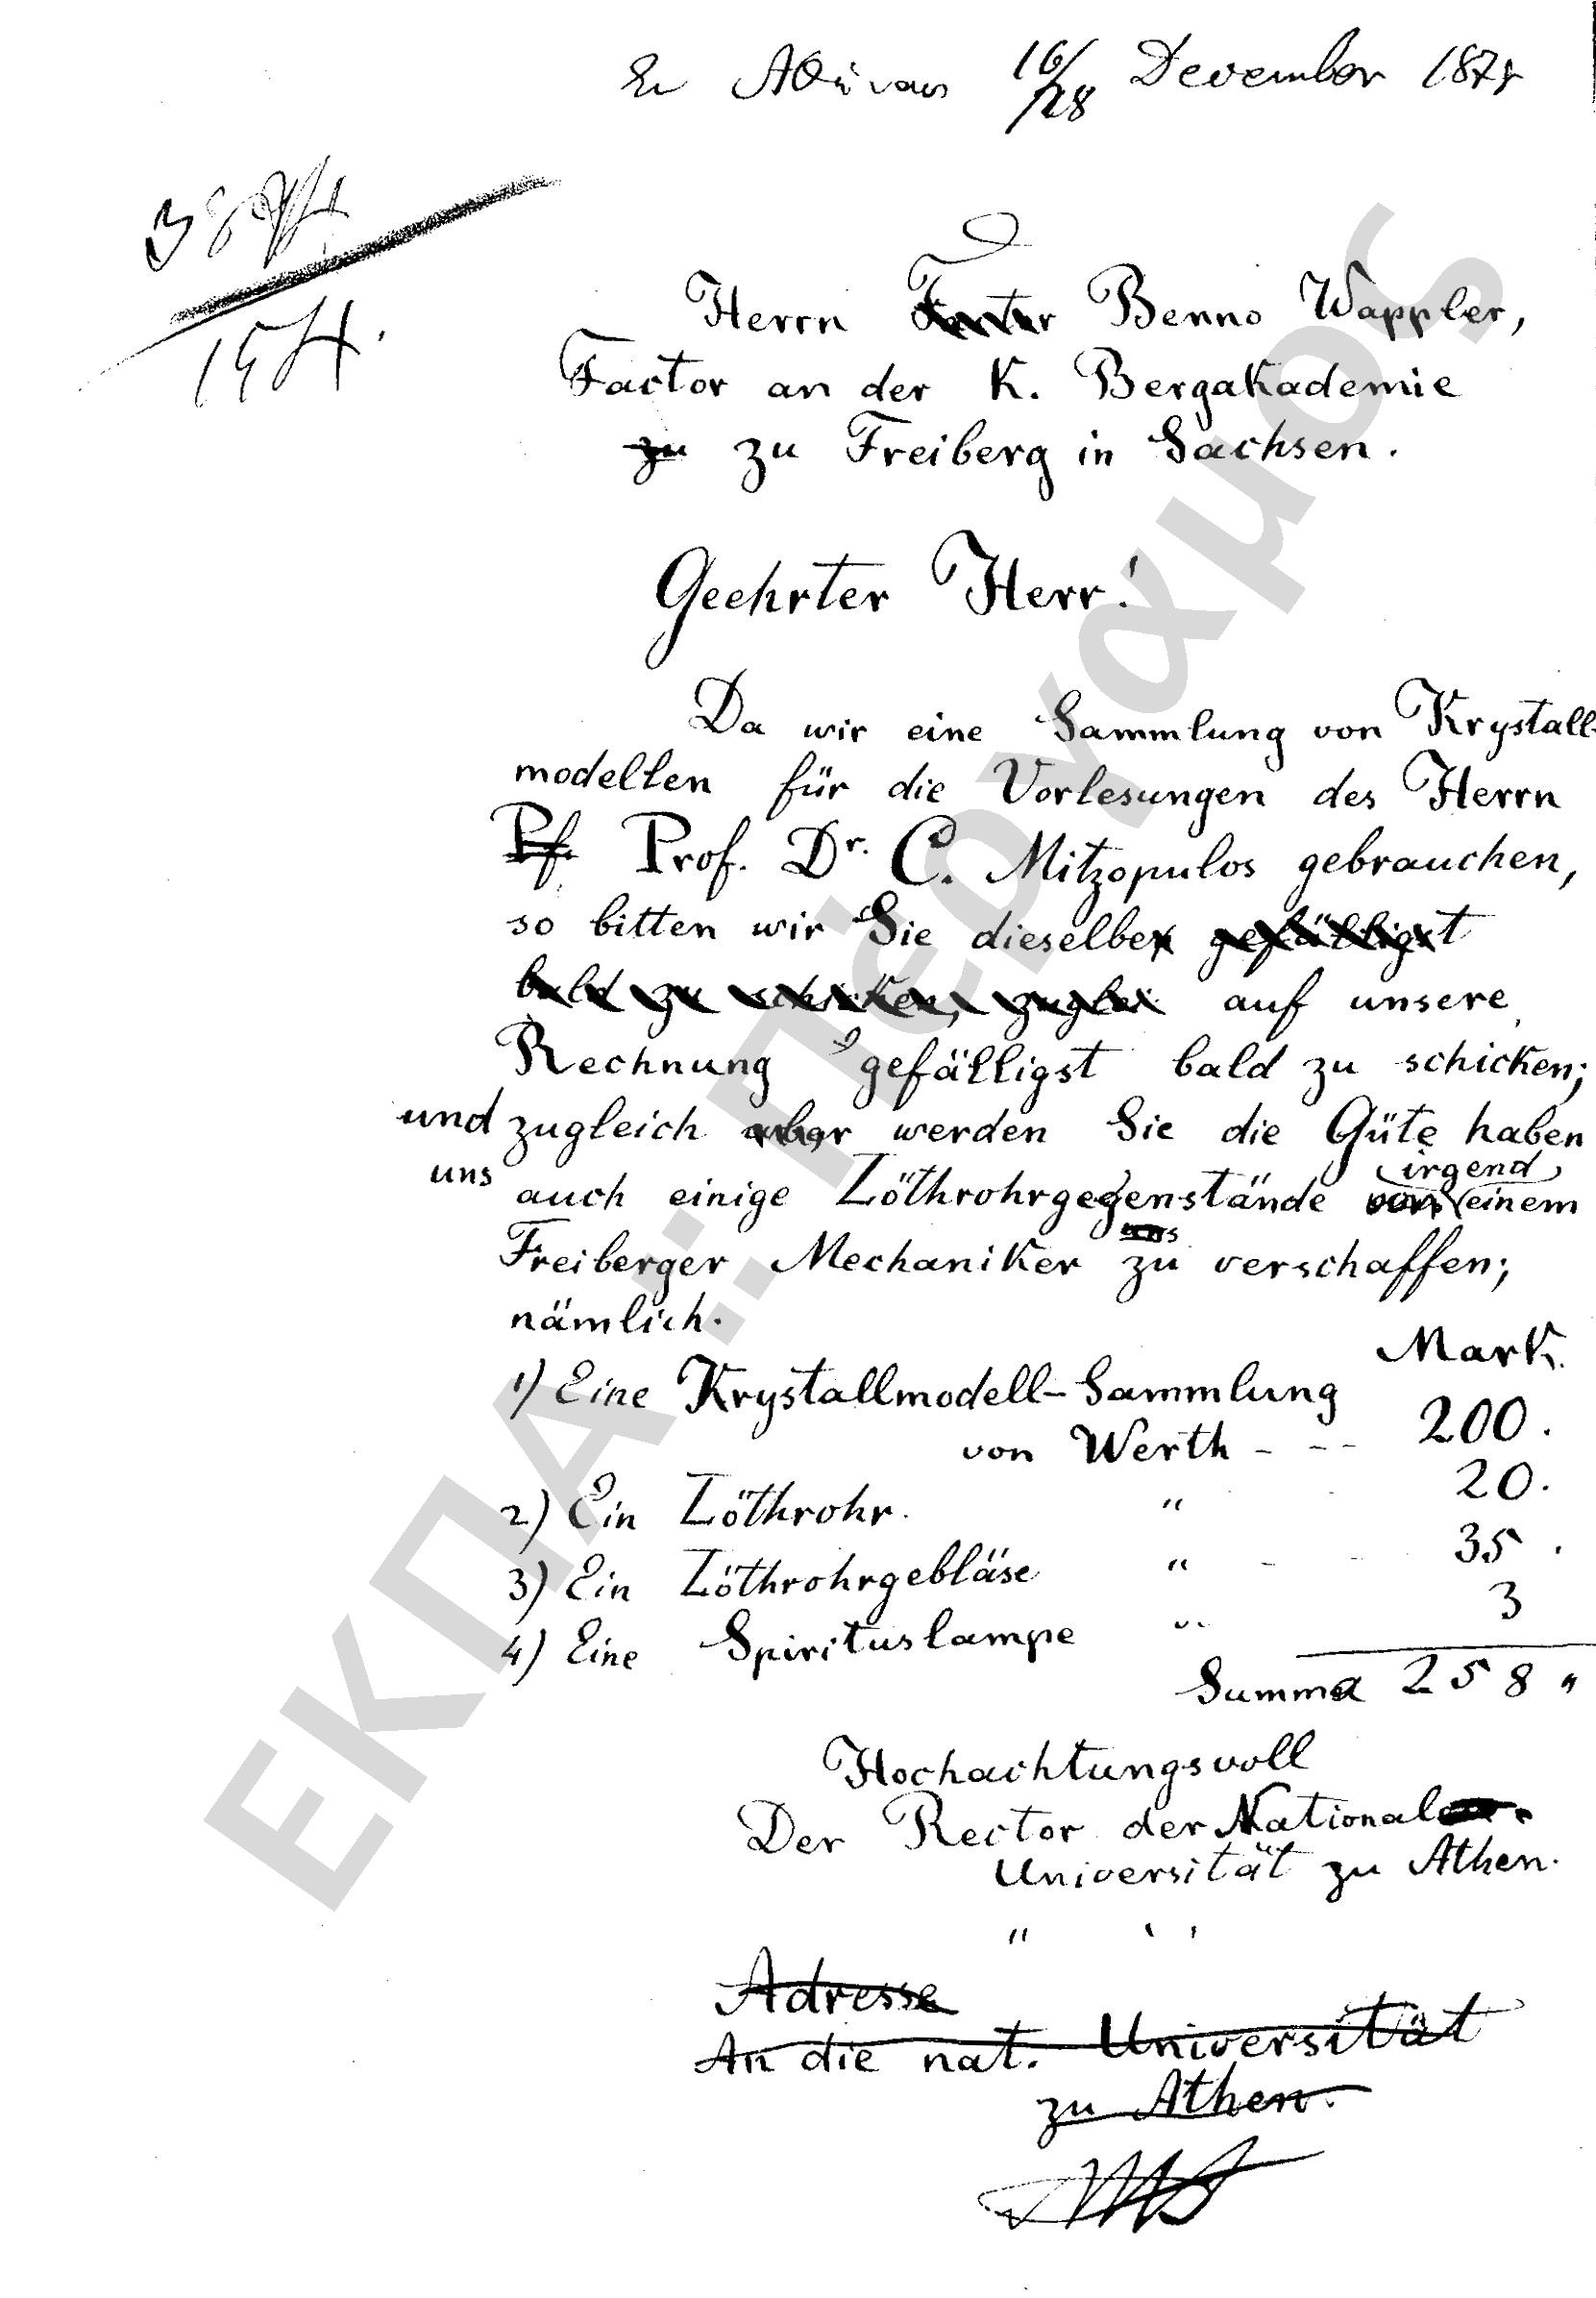 Ἐν Ἀθήναις 16/28 December 187
Herrn Factor Benno Wappler,
Factor an der K. Bergakademie
zu zu Freiberg in Sachsen.
Geehrter Herr!
Da wir eine Sammlung von Krystall-
modellen für die Vorlesungen des Herrn
Pf. Prof. Dr. C. Mitzopulos gebrauchen,
so bitten wir Sie dieselbe gefälligst
bald zu schicken, zuglei auf unsere
Rechnung gefälligst bald zu schicken;
und zugleich aber werden Sie die Güte haben
uns auch einige Löthrohrgegenstände von irgend einem
uns
Freiberger Mechaniker zu verschaffen;
nämlich.
Mark.
1) Eine Krystallmodell-Sammlung
von Werth - - - 200.
2) Ein Löthrohr. " 20.
3) Ein Löthrohrgebläse " - - 35.
4) Eine Spirituslampe " 3
Summa 258 "
Hochachtungsvoll
Der Rector der National
Universität zu Athen.
" "
Adresse
An die nat. Universität
zu Athen.
ΕΚΠΑ :: Πέργαμος